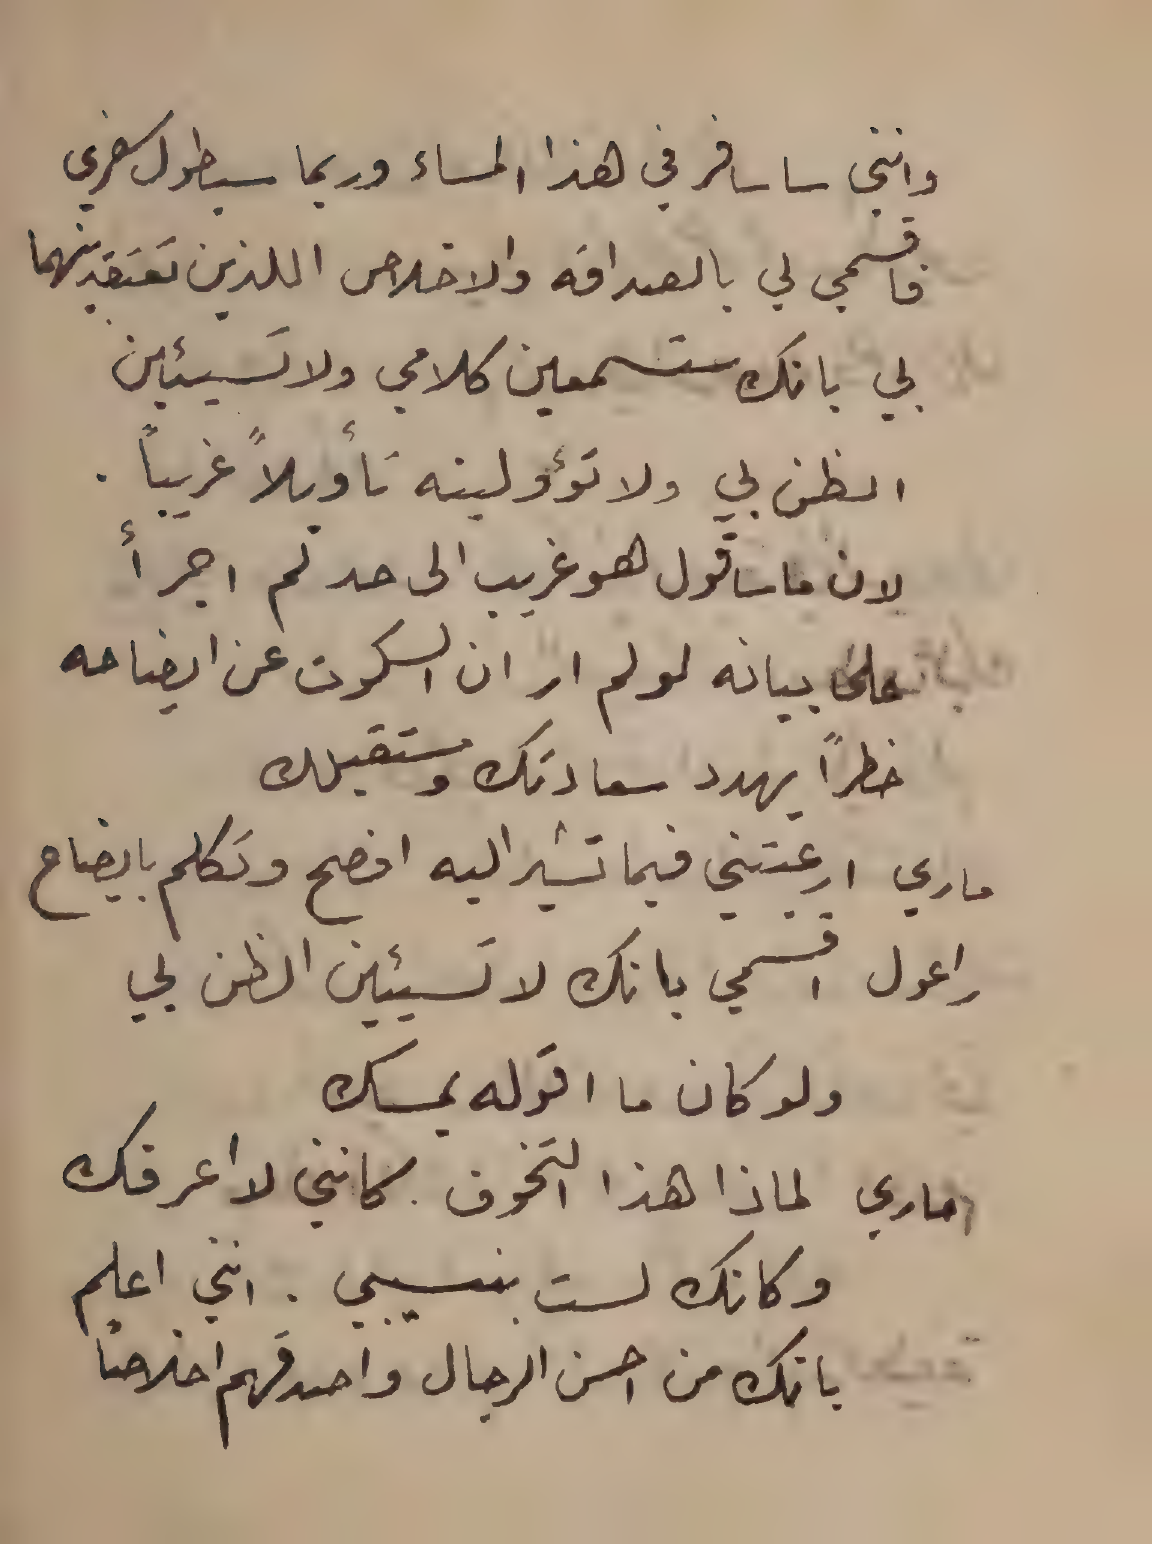 وانني ساسافر في هذا المساء وربما سيطول سفري
فاقسمي لي بالصداقه والاخلاص اللذين تعتقدينهما
لي بانك ستسمعين كلامي ولا تسيئين
الظن بي ولا تؤولينه تأويلاً غريباً .
لان ماساقول هو غريب الى حد لم اجرأ
على بيانه لو لم ار ان السكوت عن ايضاحه
خطراً يهدد سعادتك ومستقبلك
ماري ارعبتني فيما تشير اليه افصح وتكلم بايضاح
راعول اقسمي بانك لا تسيئين الظن بي
ولو كان ما اقوله يمسك
ماري لماذا هذا التخوف . كانني لا اعرفك
وكانك لست بنسيبي . انني اعلم
بانك من احسن الرجال واصدقهم اخلاصاً